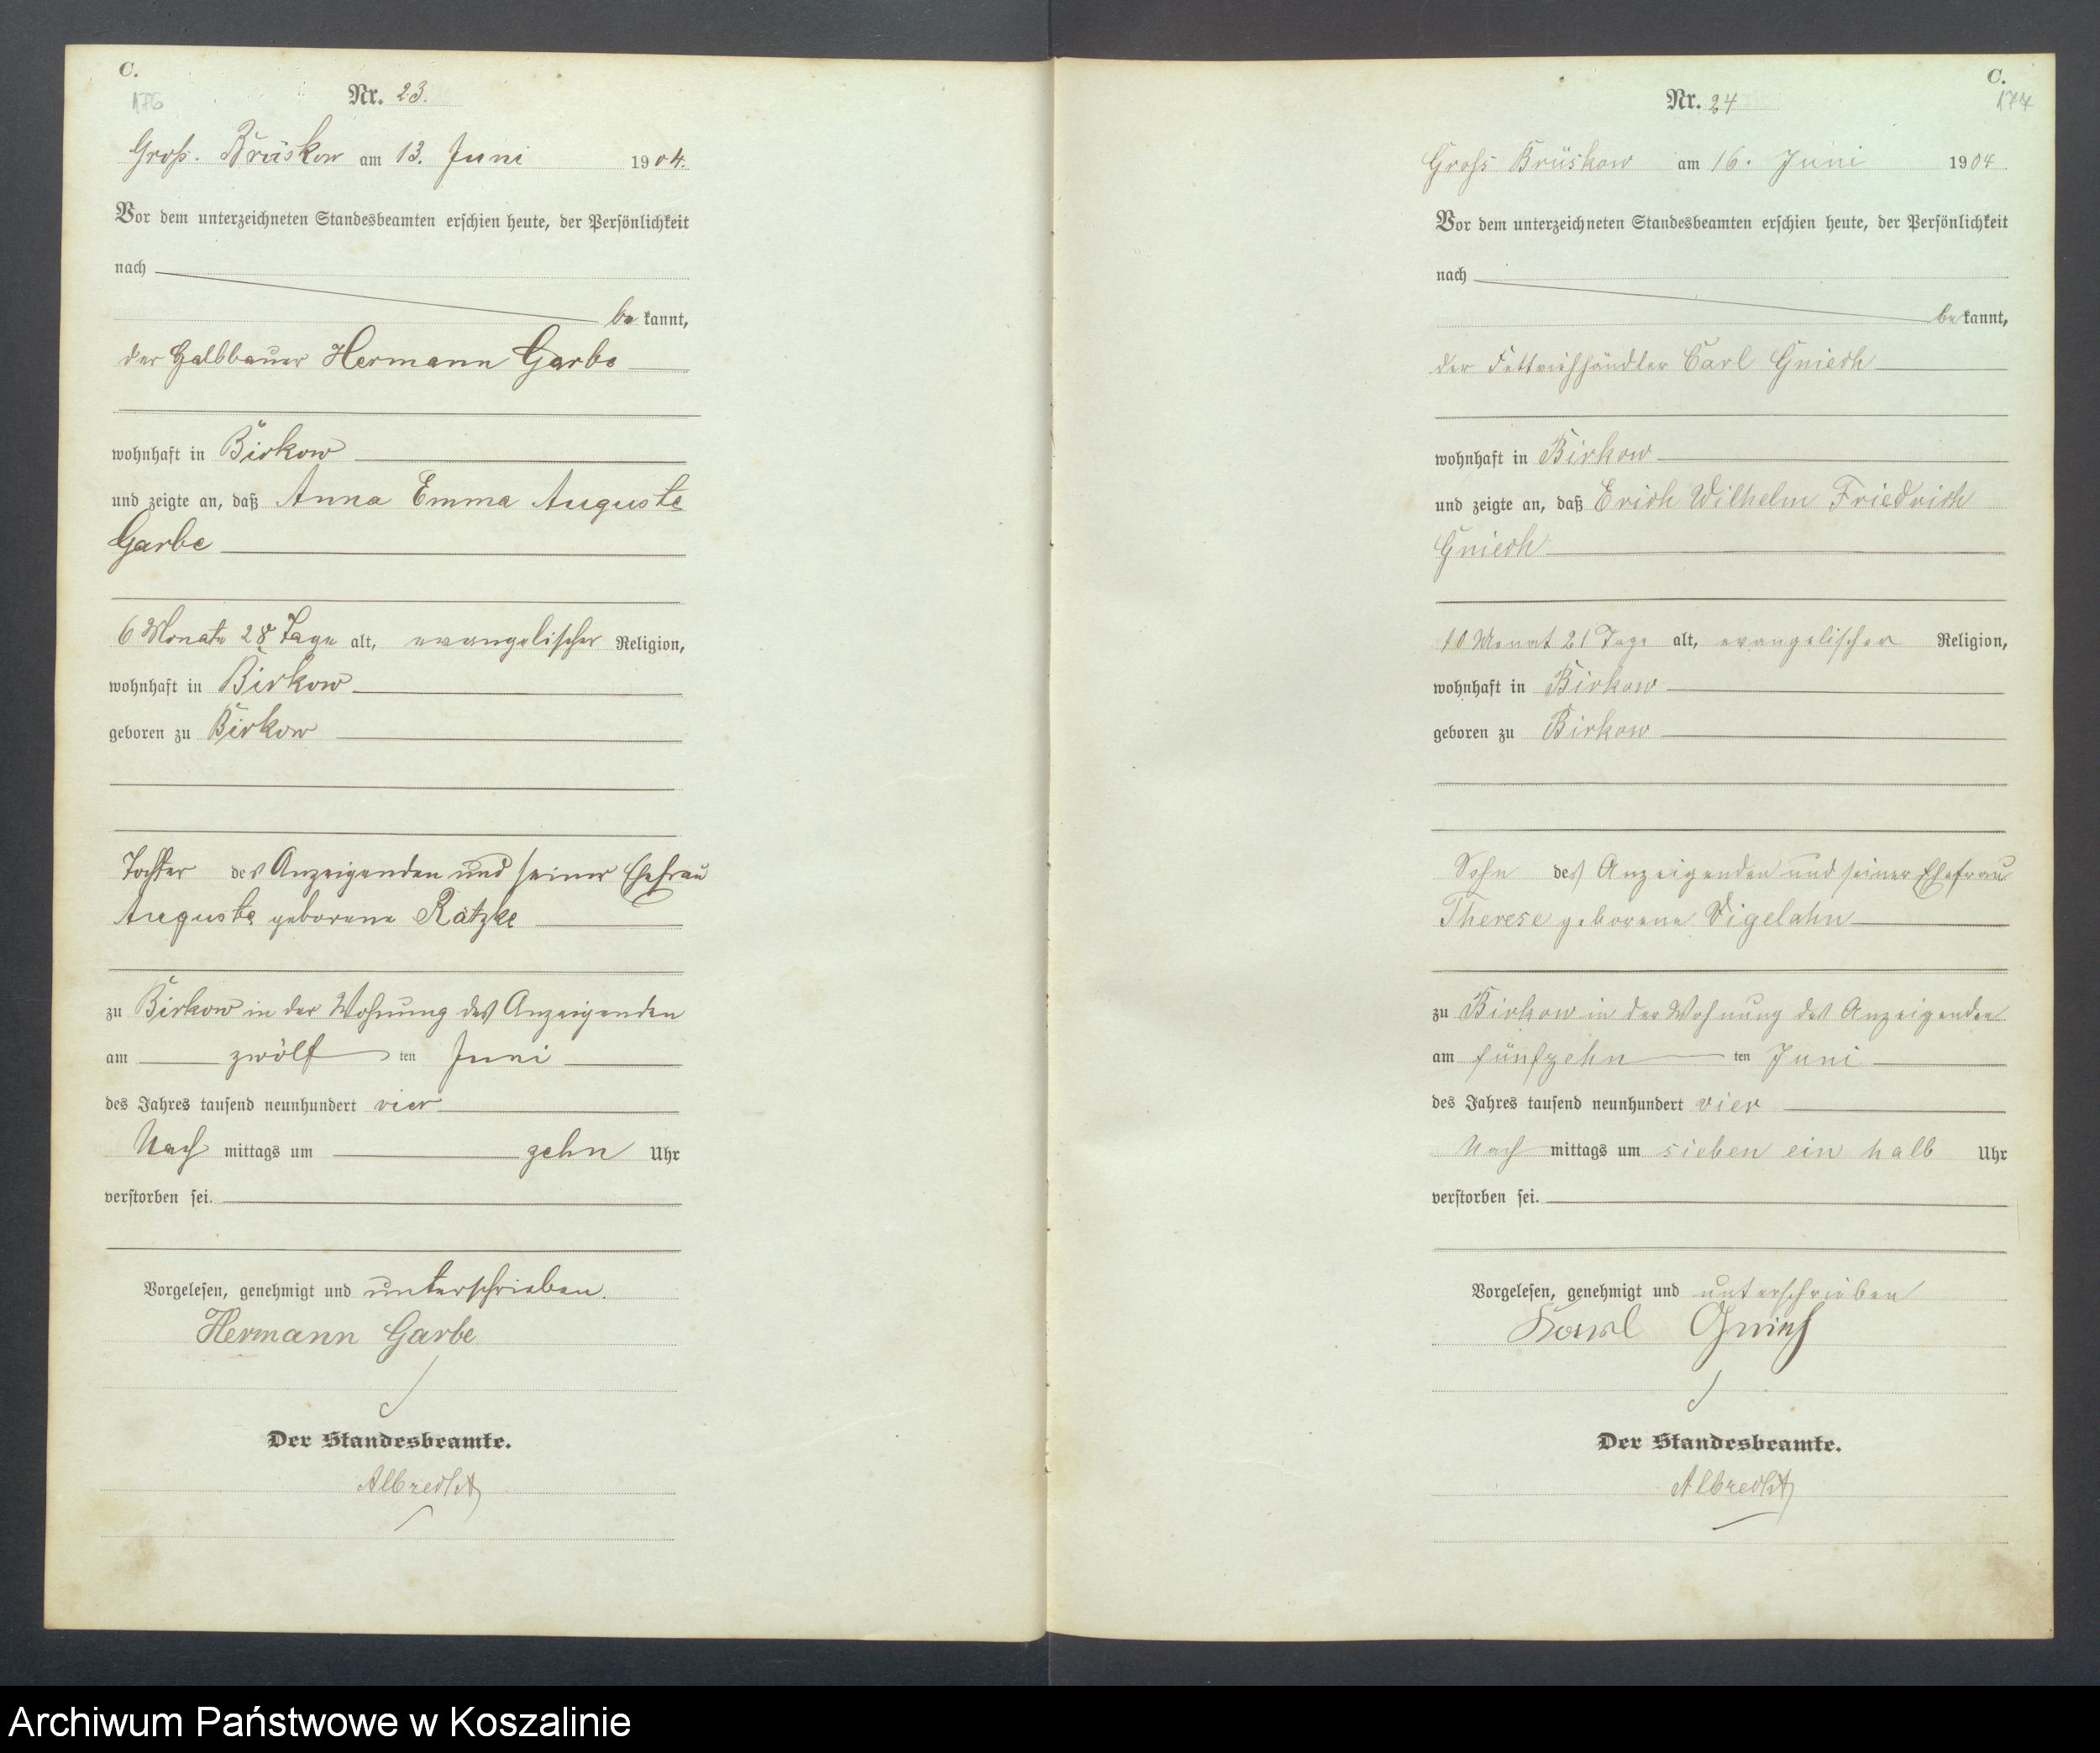 C.
176
Nr. 23.
Groß. Brüskow am 13. Juni 1904.
Vor dem unterzeichneten Standesbeamten erschien heute, der Persönlichkeit
nach
be kannt,
der Halbbauer Hermann Garbe
wohnhaft in Birkow
und zeigte an, daß Anna Emma Auguste
Garbe
6 Monate 28 Tage alt, evangelischer Religion,
wohnhaft in Birkow
geboren zu Birkow
Tochter des Anzeigenden und seiner Ehefrau
Auguste geborene Rätzke
zu Birkow in der Wohnung des Anzeigenden
am zwölf ten Juni
des Jahres tausend neunhundert vier
Nach mittags um zehn Uhr
verstorben sei.
Vorgelesen, genehmigt und unterschrieben.
Hermann Garbe
Der Standesbeamte.
Albrecht
C.
177
Nr. 24
Groß Brüskow am 16. Juni 1904
Vor dem unterzeichneten Standesbeamten erschien heute, der Persönlichkeit
nach
be kannt,
der Fettviehhändler Carl Gniech
wohnhaft in Birkow
und zeigte an, daß Erich Wilhelm Friedrich
Gniech
10 Monat 21 Tage alt, evangelischer Religion,
wohnhaft in Birkow
geboren zu Birkow
Sohn des Anzeigenden und seiner Ehefrau
Therese geborene Vigelahn
zu Birkow in der Wohnung des Anzeigenden
am fünfzehn ten Juni
des Jahres tausend neunhundert vier
Nach mittags um sieben ein halb Uhr
verstorben sei.
Vorgelesen, genehmigt und unterschrieben
Karl Gniech
Der Standesbeamte.
Albrecht
Archiwum Państwowe w Koszalinie